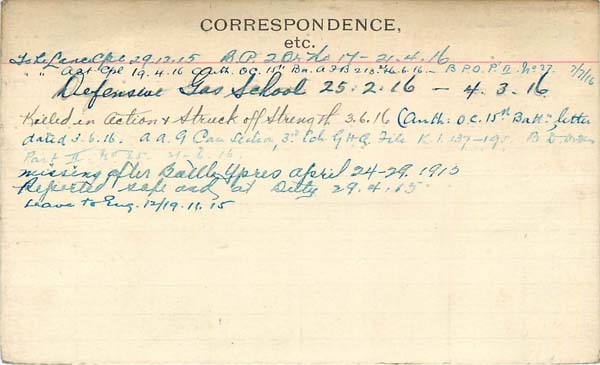 CORRESPONDENCE,
etc.
To be Lance Cpl 29.12.15 B.P. 2 Or No 17 - 21.4.16
" " Act Cpl 19.4.16 Auth. O.C. 15th Bn. A.F.B 213 16.6.16 - B P.O. P. II No 27. 7/7/16
Defensive Gas School 25.2.16 - 4.3.16
Killed in Action & Struck off Strength 3.6.16 (Auth: O.C. 15th Batt: letter
dated 3.6.16. A.A.G Can Section, 3rd Ech G.H.Q. File K.1.137-195 B.
Part II No 25. 21.6.16)
missing after Battle Ypres April 24-29. 1915
Reported safe and at Duty 29.4.15
Leave to Eng. 12/19.11.15